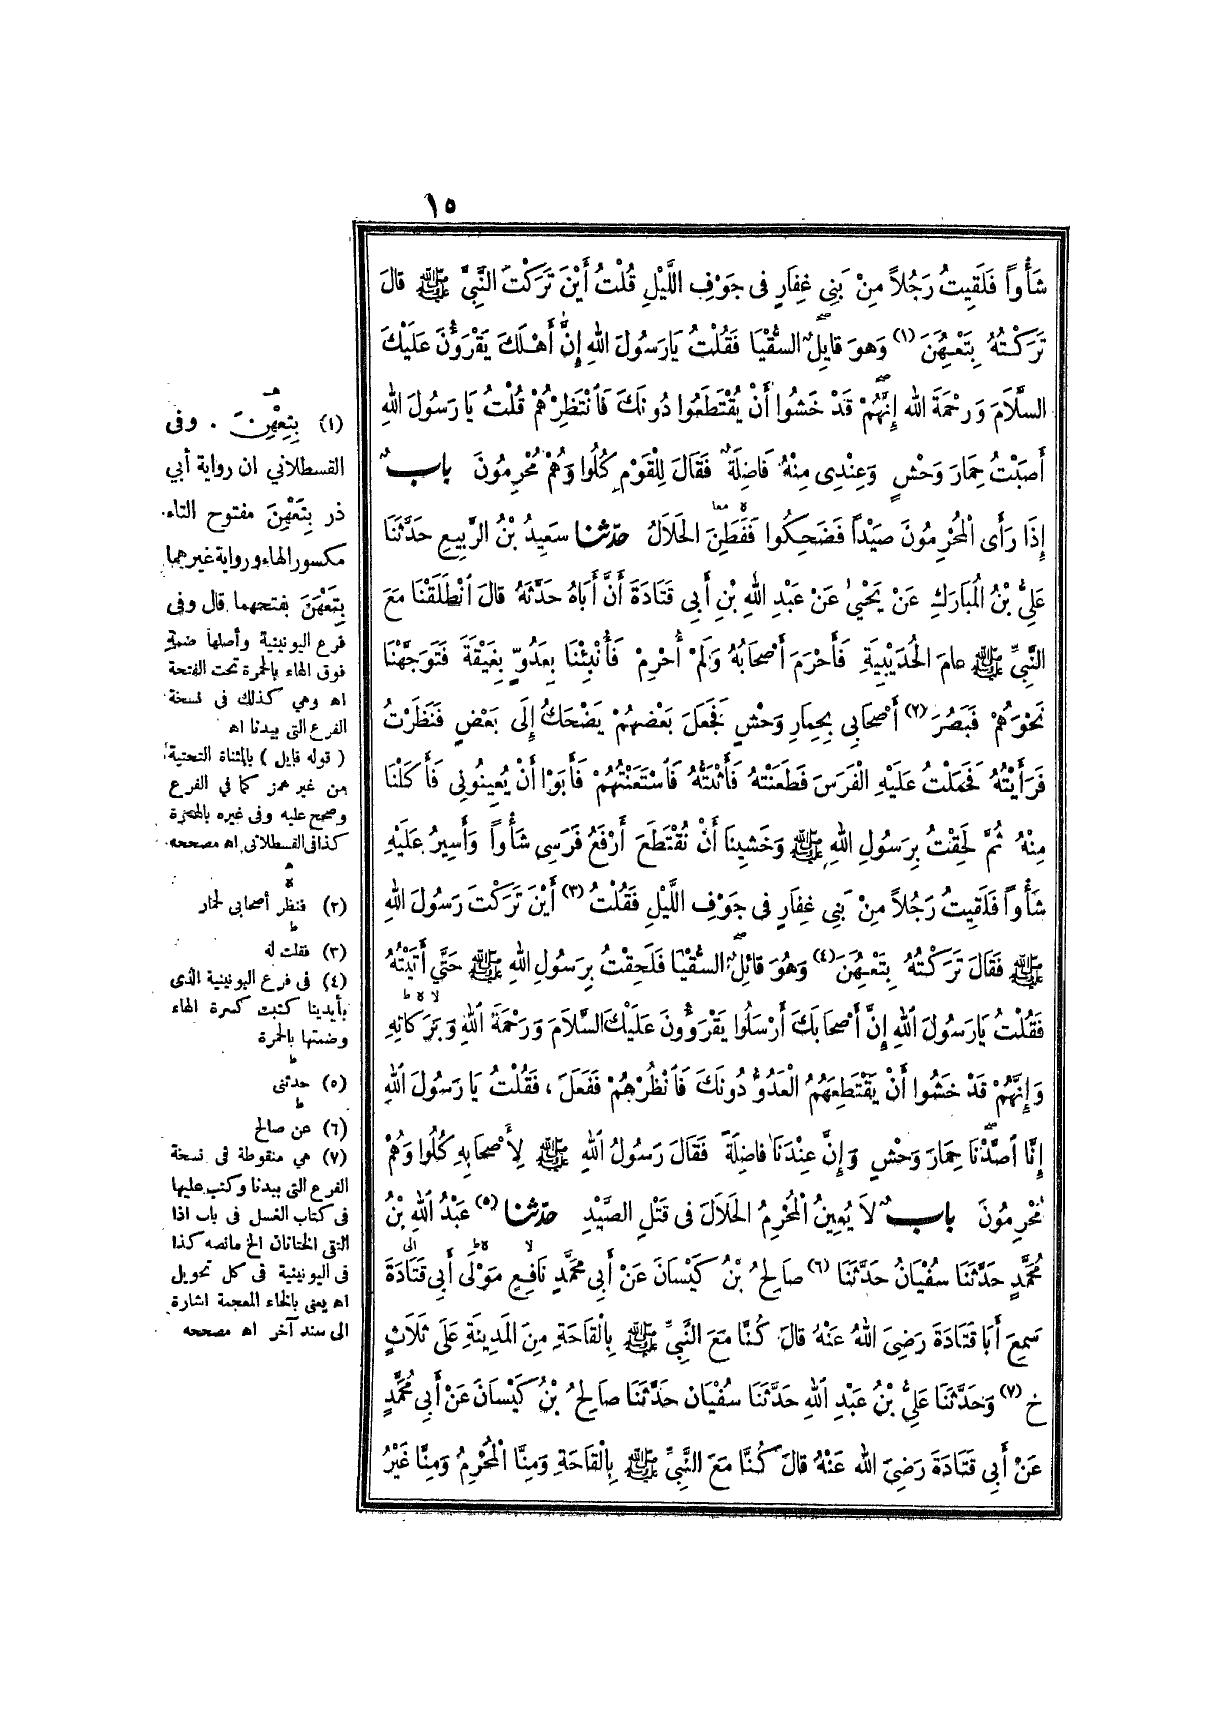 ١٥
شَأْواً فَلَقِيتُ رَجُلاً مِنْ بَنِي غِفَارٍ فِى جَوْفِ اللَّيْلِ قُلْتُ أَيْنَ تَرَكْتَ النَّبِىَّ ﷺ قالَ
تَرَكْتُهُ بِتَعْهِنَ (١) وَهوَ قايِلٌ السُّقْيَا فَقُلْتُ يَارَسُولَ اللهِ إِنَّ أَهْلَكَ يَقْرَؤُنَ عَلَيْكَ
السَّلاَمَ وَرَحْمَةَ اللهِ إِنَّهُمْ قَدْ خَشُوا أَنْ يُقْتَطَعُوا دُونَكَ فَانْتَظِرْهُمْ قُلْتُ يَا رَسُولَ اللهِ
أَصَبْتُ حِمَارَ وَحْشٍ وَعِنْدِى مِنْهُ فَاضِلَةٌ فَقَالَ لِلْقَوْمِ كُلُوا وَهُمْ مُحْرِمُونَ بابٌ
إِذَا رَأَى الْمُحْرِمُونَ صَيْداً فَضَحِكُوا فَفَطِنَ الحَلاَلُ حدّثنا سَعِيدُ بْنُ الرَّبِيعِ حَدَّثَنَا
عَلِيُّ بْنُ الْمُبَارَكِ عَنْ يَحْيٰى عَنْ عَبْدِ اللهِ بْنِ أَبِى قَتَادَةَ أَنَّ أَبَاهُ حَدَّثَهُ قالَ انْطَلَقْنَا مَعَ
النَّبِيِّ ﷺ عامَ الحُدَيْبِيَةِ فَأَحْرَمَ أَصْحَابُهُ وَلَمْ أُحْرِمْ فَأُنْبِئْنَا بِعَدُوٍّ بِغَيْقَةَ فَتَوَجَّهْنَا
نَحْوَهُمْ فَبَصُرَ (٢) أَصْحَابِى بِحِمَارِ وَحْشٍ فَجَعَلَ بَعْضُهُمْ يَضْحَكُ إِلَى بَعْضٍ فَنَظَرْتُ
فَرَأَيْتُهُ فَحَمَلْتُ عَلَيْهِ الْفَرَسَ فَطَعَنْتُهُ فَأَثْبَتُّهُ فَاسْتَعَنْتُهُمْ فَأَبَوْا أَنْ يُعِينُونِى فَأَكَلْنَا
مِنْهُ ثُمَّ لَحِقْتُ بِرَسُولِ اللهِ ﷺ وَخَشِينَا أَنْ نُقْتَطَعَ أَرْفَعُ فَرَسِى شَأْواً وَأَسِيرُ عَلَيْهِ
شَأْواً فَلَقِيتُ رَجُلاً مِنْ بَنِي غِفَارٍ فِى جَوْفِ اللَّيْلِ فَقُلْتُ (٣) أَيْنَ تَرَكْتَ رَسُولَ اللهِ
ﷺ فَقَالَ تَرَكْتُهُ بِتَعْهِنَ (٤) وَهُوَ قائِلٌ السُّقْيَا فَلَحِقْتُ بِرَسُولِ اللهِ ﷺ حَتَّى أَتَيْتُهُ
فَقُلْتُ يَارَسُولَ اللهِ إِنَّ أَصْحَابَكَ أَرْسَلُوا يَقْرَؤُونَ عَلَيْكَ السَّلاَمَ وَرَحْمَةَ اللهِ وَبَرَكاتِهِ
وَإِنَّهُمْ قَدْ خَشُوا أَنْ يَقْتَطِعَهُمُ الْعَدُوُّ دُونَكَ فَانْظُرْهُمْ فَفَعَلَ ، فَقُلْتُ يَا رَسُولَ اللهِ
إِنَّا اصَّدْنَا حِمَارَ وَحْشٍ وَإِنَّ عِنْدَنَا فاضِلَةً فَقَالَ رَسُولُ اللهِ ﷺ لِأَصْحَابِهِ كُلُوا وَهُمْ
مُحْرِمُونَ بابٌ لاَ يُعِينُ الْمُحْرِمُ الحَلاَلَ فِى قَتْلِ الصَّيْدِ حدّثنا (٥) عَبْدُ اللهِ بْنُ
مُحَمَّدٍ حَدَّثَنَا سُفْيَانُ حَدَّثَنَا (٦) صَالِحُ بْنُ كَيْسَانَ عَنْ أَبِى مُحَمَّدٍ نَافِعٍ مَوْلَى أَبِى قَتَادَةَ
سَمِعَ أَبَا قَتَادَةَ رَضِيَ اللهُ عَنْهُ قالَ كُنَّا مَعَ النَّبِيِّ ﷺ بِالْقَاحَةِ مِنَ الْمَدِينَةِ عَلَى ثَلاَثٍ
خ (٧) وَحَدَّثَنَا عَلِيُّ بْنُ عَبْدِ اللهِ حَدَّثَنَا سُفْيَانُ حَدَّثَنَا صَالِحُ بْنُ كَيْسَانَ عَنْ أَبِى مُحَمَّدٍ
عَنْ أَبِى قَتَادَةَ رَضِيَ اللهُ عَنْهُ قالَ كُنَّا مَعَ النَّبِيِّ ﷺ بِالْقَاحَةِ وَمِنَّا الْمُحْرِمُ وَمِنَّا غَيْرُ
(١) بِتِعْهِنَ . وفى
القسطلاني ان رواية أبي
ذر بِتَعْهِنَ مفتوح التاء
مكسور الهاء ورواية غيرهما
بِتَعْهَنَ بفتحهما قال وفى
فرع اليونينية وأصلها ضمة
فوق الهاء بالحمرة تحت الفتحة
اه وهي كذلك فى نسخة
الفرع التى بيدنا اه
( قوله قايل ) بالمثناة التحتية
من غير همز كما في الفرع
وصحح عليه وفى غيره بالهمزة
كذافى القسطلانى اه مصححه
(٢) فنظر أصحابى لحمار
(٣) فقلت له
(٤) فى فرع اليونينية الذى
بأيدينا كتبت كسرة الهاء
وضمتها بالحمرة
(٥) حدثنى
(٦) عن صالح
(٧) هي منقوطة فى نسخة
الفرع التى بيدنا وكتب عليها
فى كتاب الغسل فى باب اذا
التقى الختانان الخ مانصه كذا
فى اليونينية فى كل تحويل
اه يعنى بالخاء المعجمة اشارة
الى سند آخر اه مصححه